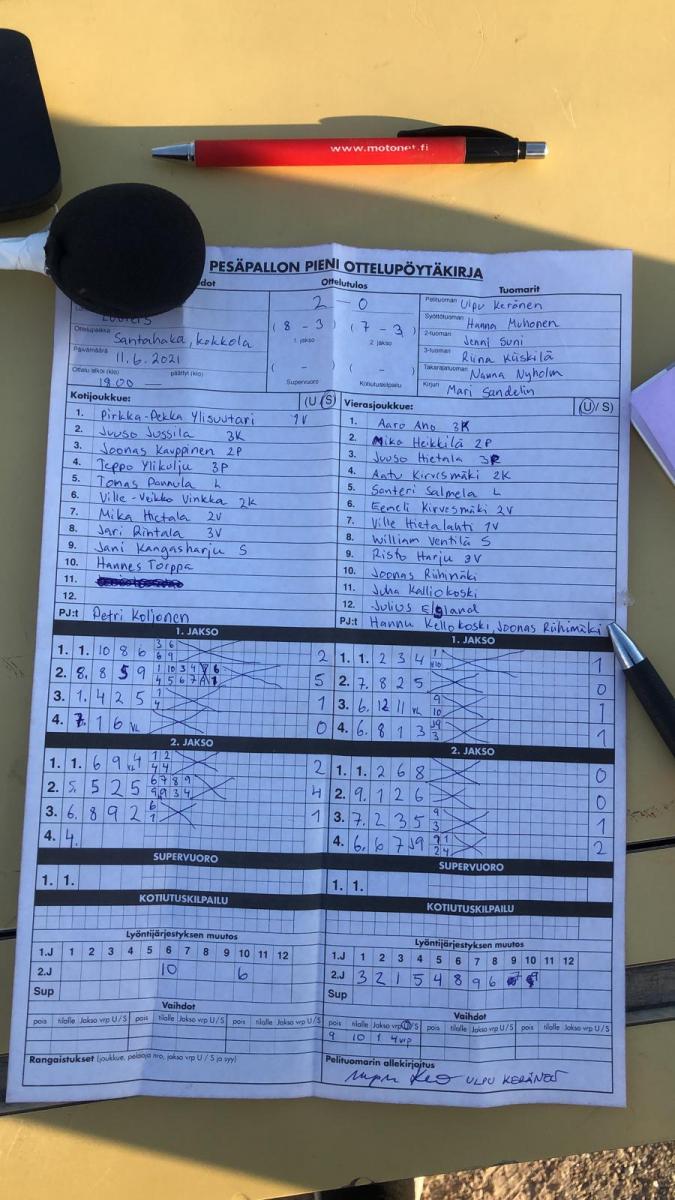 www.motonet.fi
PESÄPALLON PIENI OTTELUPÖYTÄKIRJA
Ottelutulos
Tuomarit
2 - 0
Pelituomari Ulpu Keränen
Syöttötuomari Hanna Muhonen
2-tuomari Jenni Suni
3-tuomari Riina Käskilä
Takarajatuomari Nanna Nyholm
Kirjuri Mari Sandelin
Ottelupaikka Santahaka, Kokkola
Päivämäärä 11.6.2021
Ottelu alkoi (klo) 19.00 päättyi (klo)
(8 - 3) (7 - 3)
1. jakso 2. jakso
( - ) ( - )
Supervuoro Kotiutuskilpailu
Kotijoukkue: (U/S)
1. Pirkka-Pekka Ylisuutari 1V
2. Juuso Jussila 3K
3. Joonas Kauppinen 2P
4. Teppo Ylikulju 3P
5. Tomas Pannula L
6. Ville-Veikko Vinkka 2K
7. Mika Hietala 2V
8. Jari Rintala 3V
9. Jani Kangasharju S
10. Hannes Torppa
11.
12.
PJ:t Petri Koljonen
Vierasjoukkue: (U/S)
1. Aaro Aho 3K
2. Miko Heikkilä 2P
3. Juuso Hietala 3P
4. Antu Kirvesmäki 2K
5. Santeri Salmela L
6. Eeneli Kirvesmäki 2V
7. Ville Hietalahti 1V
8. William Ventilä S
9. Risto Harju 3V
10. Joonas Riihimäki
11. Juha Kalliokoski
12. Julius
PJ:t Hannu Kellokoski, Joonas Riihimäki
1. JAKSO
1. 1. 10 8 6 3 6 6 9 2
2. 8. 8 5 9 5
3. 1. 4 2 5 1 4 1
4. 7. 1 6 VL 0
2. JAKSO
1. 1. 6 9 4 1 2 4 4 2
2. 5. 5 2 5 6 7 8 9 9 9 3 4 4
3. 6. 8 9 2 6 1 1
4. 4.
SUPERVUORO
1. 1.
KOTIUTUSKILPAILU
Lyöntijärjestyksen muutos
1.J 1 2 3 4 5 6 7 8 9 10 11 12
2.J 10 6
Sup
Vaihdot
pois tilalle Jakso vrp U/S pois tilalle Jakso vrp U/S pois tilalle Jakso vrp U/S
Rangaistukset (joukkue, pelaaja nro, jakso vrp U/S ja syy)
1. JAKSO
1. 1. 2 3 4 1 10 1
2. 7. 8 2 5 0
3. 6. 12 11 VL 9 10 1
4. 6. 8 1 3 J9 3 1
2. JAKSO
1. 1. 2 6 8 0
2. 9. 1 2 6 0
3. 7. 2 3 5 9 3 1
4. 6. 6 7 J9 9 1 2 4 2
SUPERVUORO
1. 1.
KOTIUTUSKILPAILU
Lyöntijärjestyksen muutos
1.J 1 2 3 4 5 6 7 8 9 10 11 12
2.J 3 2 1 5 4 8 9 6
Sup
Vaihdot
pois tilalle Jakso vrp U/S pois tilalle Jakso vrp U/S pois tilalle Jakso vrp U/S
9 10 1 4vp
Pelituomarin allekirjoitus
ULPU KERÄNEN